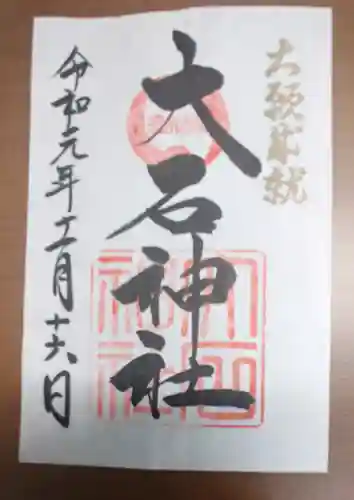 大願成就
大石神社
令和元年十一月十六日